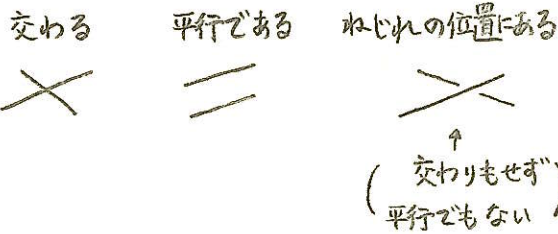 交わる
平行である
ねじれの位置にある
( 交わりもせず
平行でもない )